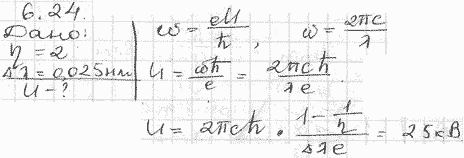 6.24.
Дано:
η = 2
Δλ = 0,025 нм
U - ?
ω = eU/ħ, ω = 2πc/λ
U = ωħ/e = 2πcħ/λe
U = 2πcħ · (1 - 1/η)/Δλe = 25 кВ